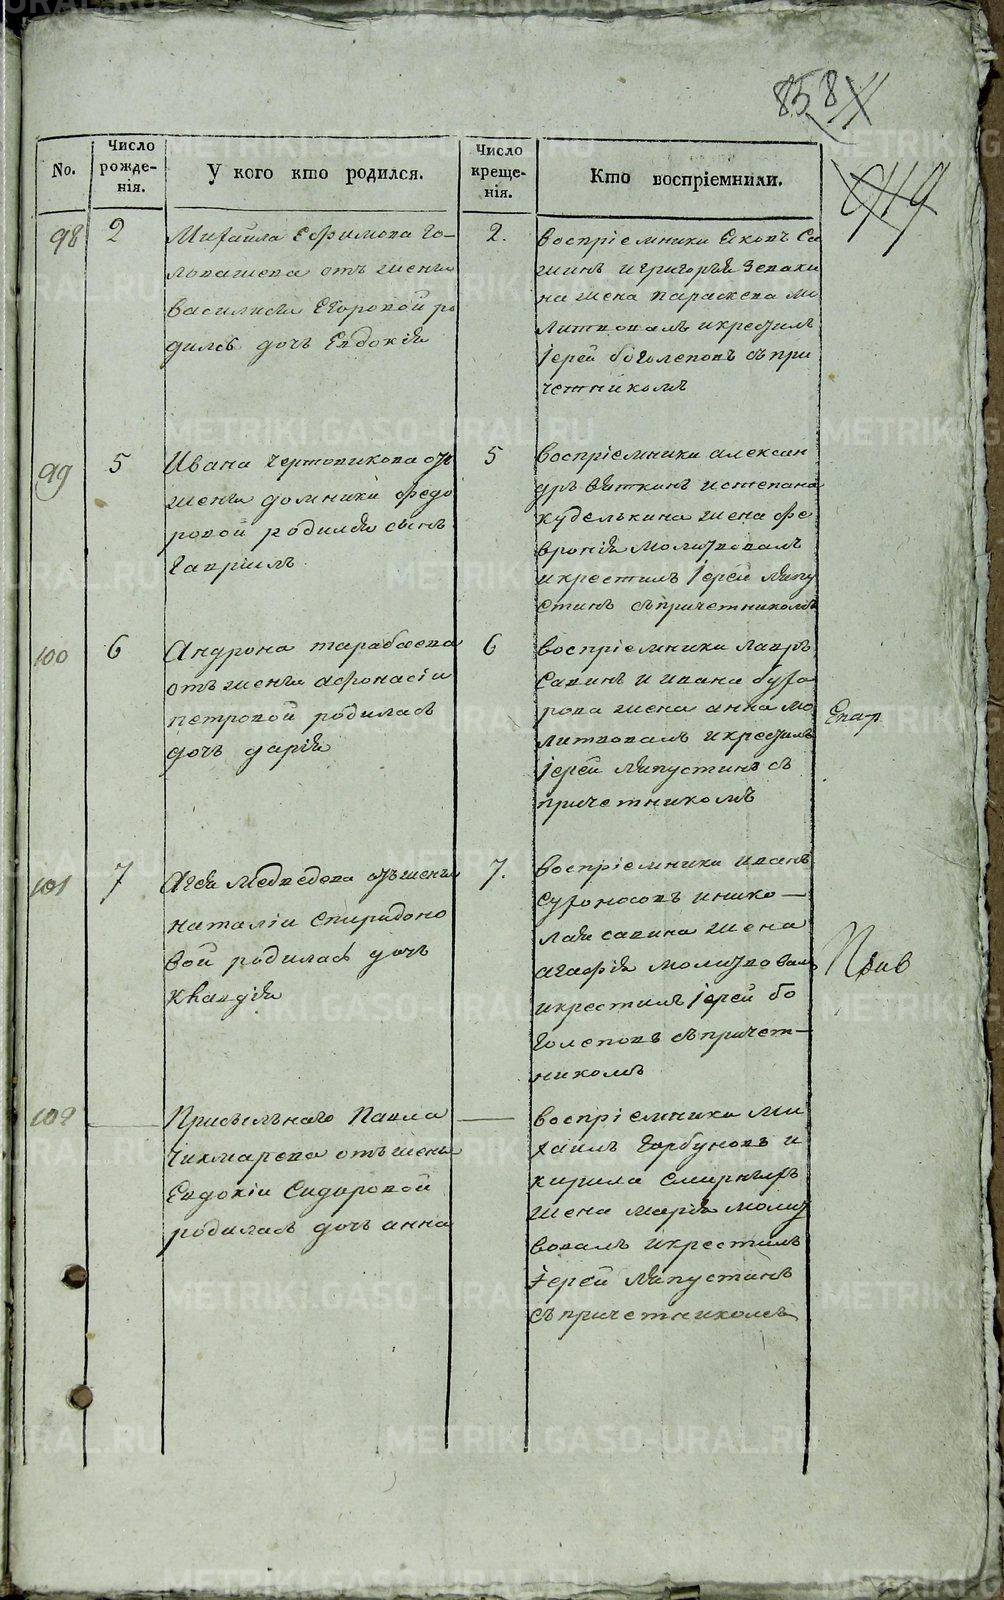 858
919
No.
Число рожде-
нія.
У кого кто родился.
Число креще-
нія.
Кто воспріемнили.
98
2
Михайла Ефимова Го-
ловашева отъ жены
василисы Егоровой ро
дилсь дочь Евдокія
2.
воспріемники Яковъ Са
шинъ и григорья Зевахи
на жена параскева мо
литвовалъ икрестилъ
іерей боголеповъ съпри
четникомъ
99
5
Ивана Чертовикова отъ
жены домники федо
ровой родился сынъ
Гавріилъ
5
воспріемники алексан
дръ вяткинъ истепана
куделькина жена фе
вронія молитвовалъ
икрестилъ іерей ляпу
стинъ съпричетникомъ
100
6
Андрона тарабаева
отъ жены афонасіи
петровой родилась
дочь дарія
6
воспріемники лавръ
Савинъ и ивана буто
рова жена анна мо
литвовалъ икрестилъ
іерей ляпустинъ съ
причетникомъ
Епар
101
7
Агея Медведева отъжены
наталіи Спиридоно
вой родилась дочь
Клавдія
7.
воспріемники иванъ
Сутоносовъ инико—
лая савина жена
агафія молитвовалъ
икрестилъ іерей бо
голеповъ съпричет—
никомъ
102
Присыльнаго Павла
Чихмарева отъжены
Евдокіи Сидоровой
родилась дочь анна
воспріемники ми
хаилъ Горбуновъ и
кирила
жена марія молит
вовалъ икрестилъ
іерей ляпустинъ
съпричетникомъ
METRIKI.GASO-URAL.RU